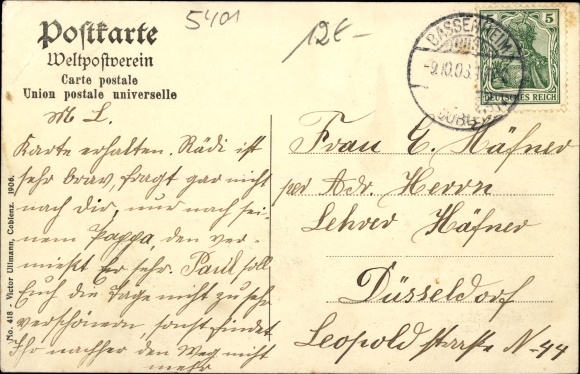 5401
12€-
Postkarte
Weltpostverein
Carte postale
Union postale universelle
BASSENHEIM
-9.10.06.
COBLENZ
5
DEUTSCHES REICH
M L.
Karte erhalten. Rädi ist
sehr brav, fragt gar nicht
nach Dir, nur nach sei-
nem Pappa, den ver-
mißt Er sehr. Paul soll
Euch die Tage nicht zu sehr
verschönern, sonst findet
Ihr nachher den Weg nicht
mehr
Frau E. Häfner
per Adr. Herrn
Lehrer Häfner
Düsseldorf
Leopold straße N-44
No. 418 - Victor Ullmann, Coblenz. 1906.